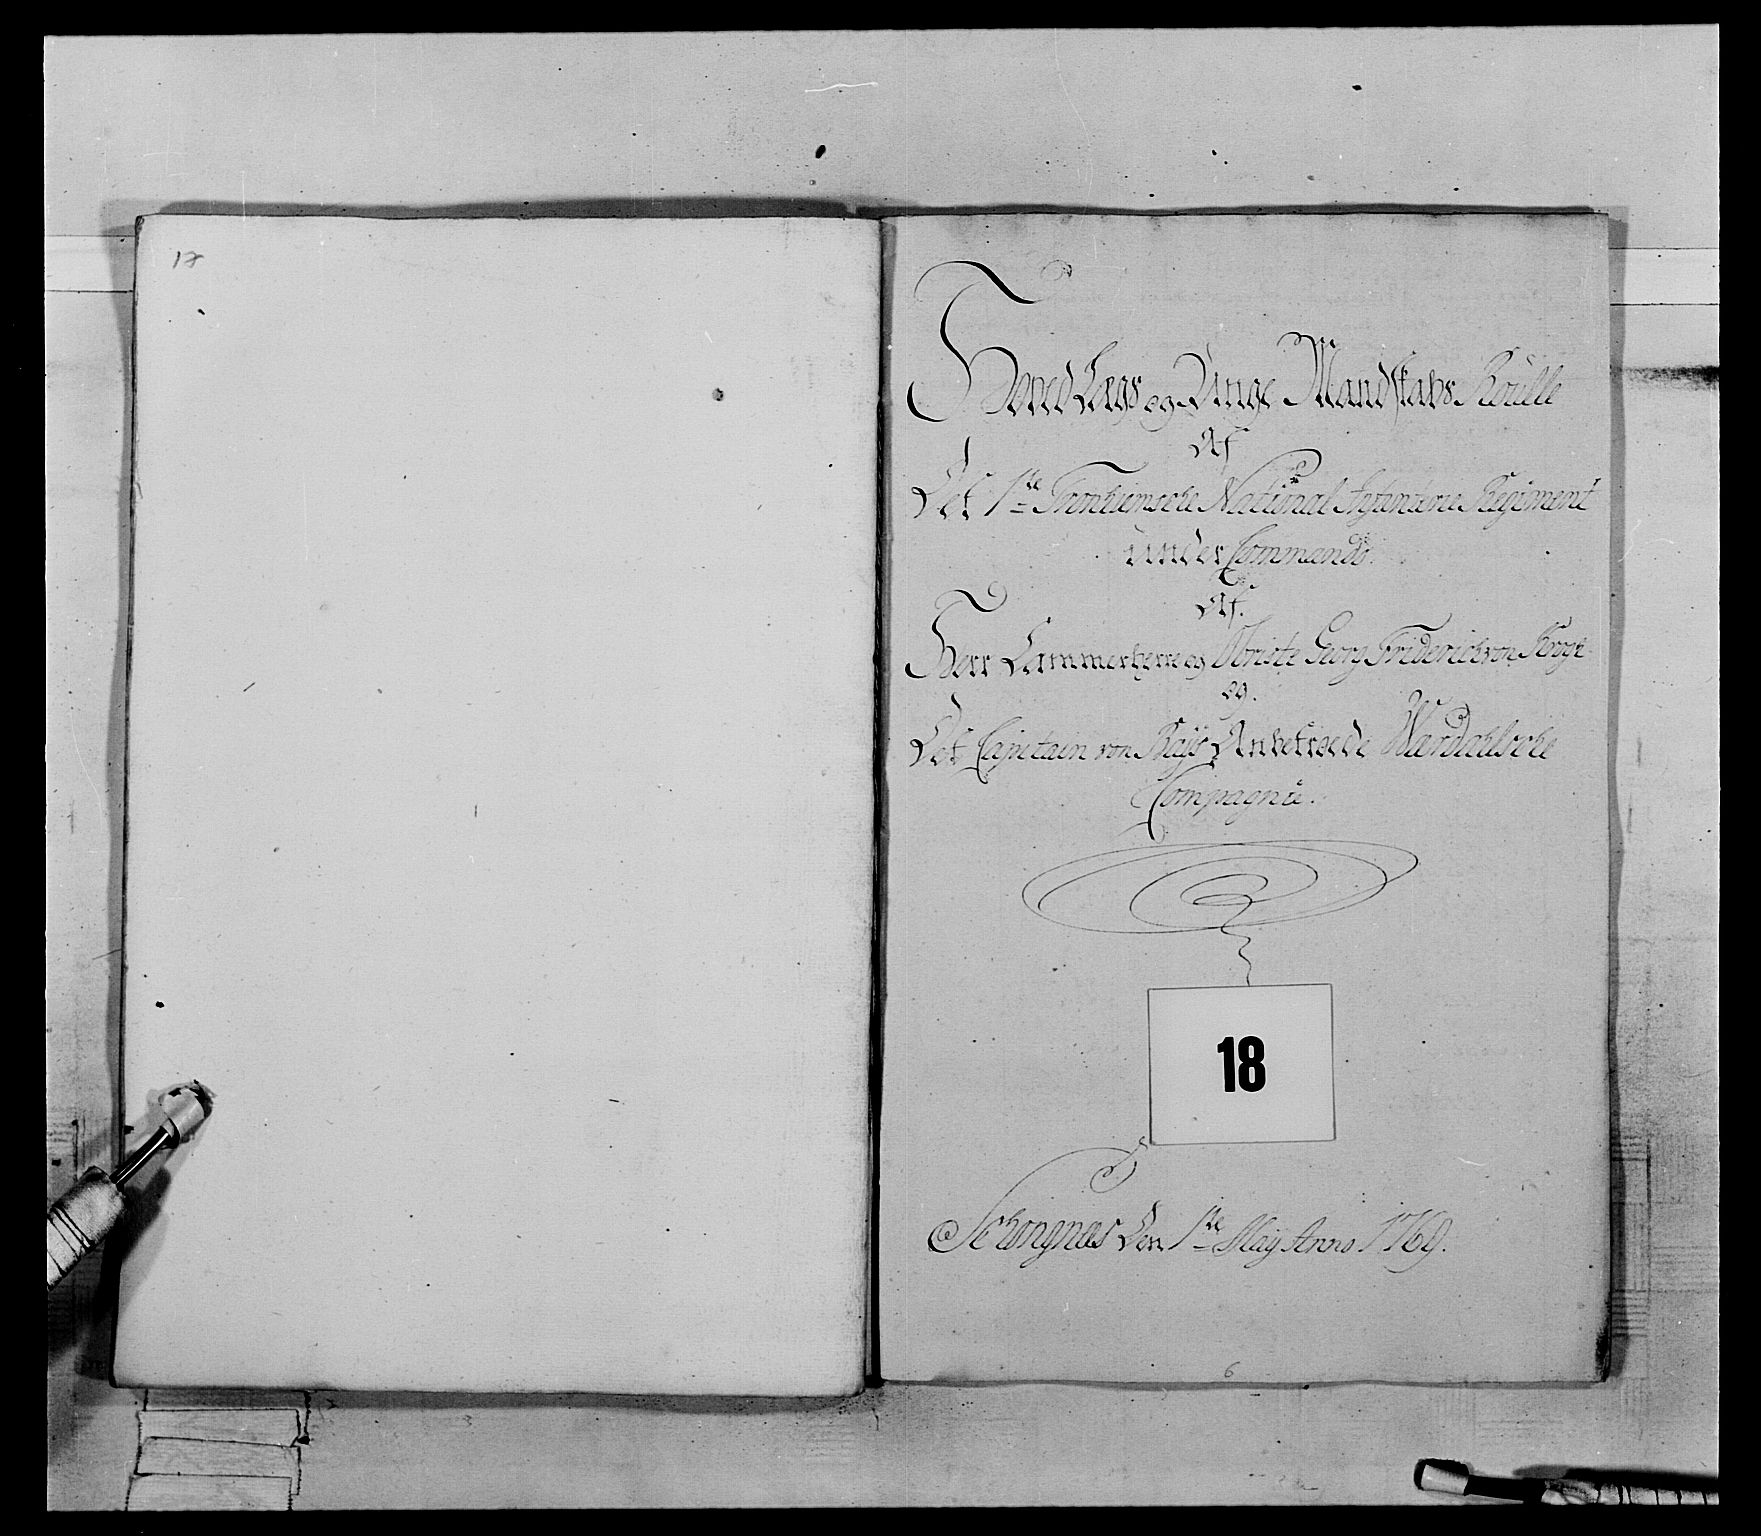 17
Hoved Lægs og Unge Mandskabs Roulle
Af
Det 1ste Tronhiemsche National Infanterie Regiment
under Commando
Af
Herr Cammerherre og Obriste Georg Friderich von Krogh
og
Det Capitain von Bajs Anbetroede Wærdahlsche
Compagnie.
18
Schongnæs Den 1ste May Anno 1769.
6